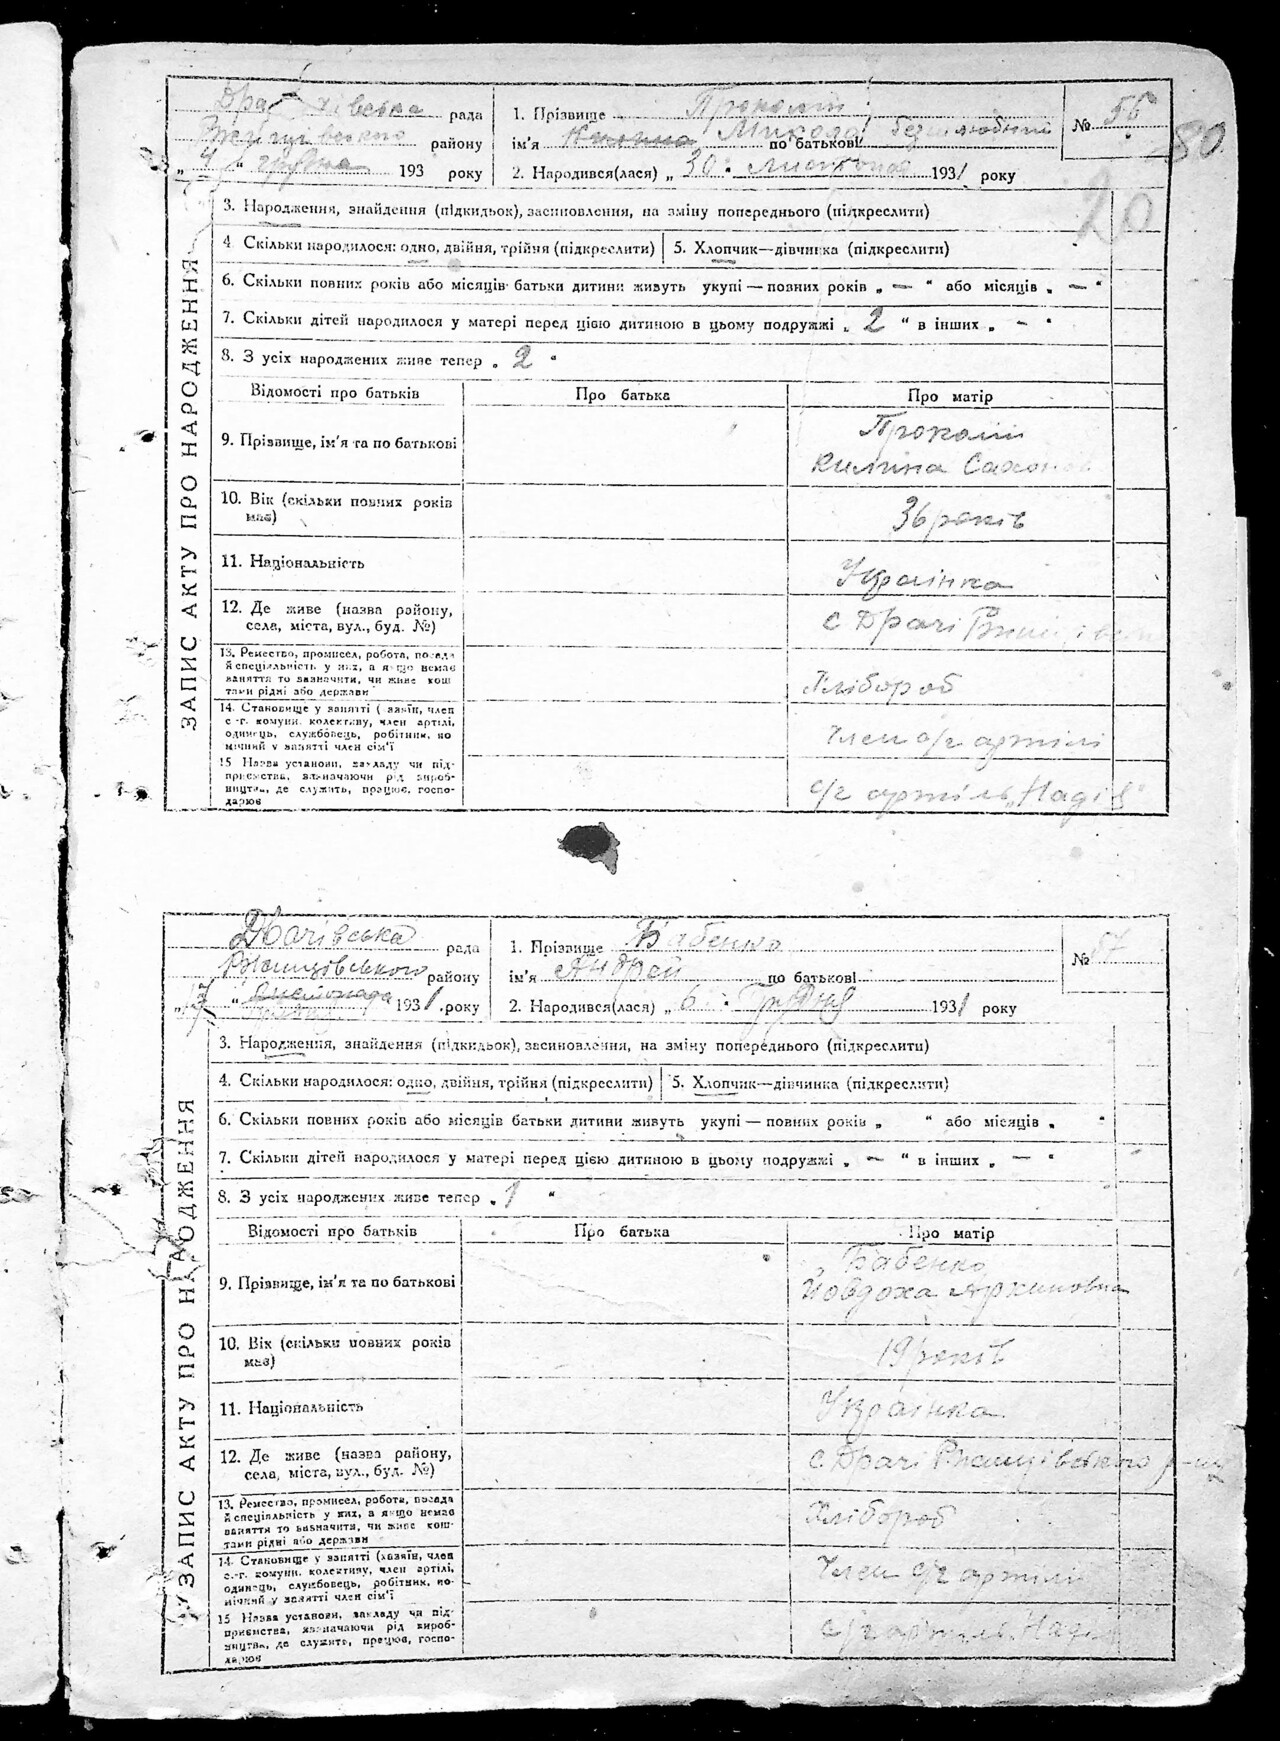 рада 1. Прізвище Прокопій № 56
району ім'я Микола по батькові безшлюбний 80
„4" грудня 193 року 2. Народився(лася) „30" листопада 1931 року
20
ЗАПИС АКТУ ПРО НАРОДЖЕННЯ
3. Народження, знайдення (підкидьок), засиновлення, на зміну попереднього (підкреслити)
4. Скільки народилося: одно, двійня, трійня (підкреслити) 5. Хлопчик—дівчинка (підкреслити)
6. Скільки повних років або місяців батьки дитини живуть укупі — повних років „ — " або місяців „ — "
7. Скільки дітей народилося у матері перед цією дитиною в цьому подружжі „ 2 " в інших „ - "
8. З усіх народжених живе тепер „ 2 "
Відомості про батьків Про батька Про матір
9. Прізвище, ім'я та по батькові Прокопій
Килина
10. Вік (скільки повних років має) 36 років
11. Національність Українка
12. Де живе (назва району, села, міста, вул., буд. №) с Драчі
13. Ремество, промисел, робота, посада й спеціальність у них, а якщо немає заняття то зазначити, чи живе коштами рідні або держави Хлібороб
14. Становище у занятті (хазяїн, член с.-г. комуни, колективу, член артілі, одинець, службовець, робітник, помічний у занятті член сім'ї Член с/г артілі
15 Назва установи, закладу чи підприємства, зазначаючи рід виробництва, де служить, працює, господарює с/г артіль „Надія"
Драчівська рада 1. Прізвище Бабенко № 57
Ржищівського району ім'я Андрей по батькові
„ " листопада 1931 року 2. Народився(лася) „6" Грудня 1931 року
ЗАПИС АКТУ ПРО НАРОДЖЕННЯ
3. Народження, знайдення (підкидьок), засиновлення, на зміну попереднього (підкреслити)
4. Скільки народилося: одно, двійня, трійня (підкреслити) 5. Хлопчик—дівчинка (підкреслити)
6. Скільки повних років або місяців батьки дитини живуть укупі — повних років „ " або місяців „ "
7. Скільки дітей народилося у матері перед цією дитиною в цьому подружжі „ — " в інших „ — "
8. З усіх народжених живе тепер „ 1 "
Відомості про батьків Про батька Про матір
9. Прізвище, ім'я та по батькові Бабенко
Йовдоха
10. Вік (скільки повних років має) 19 років
11. Національність Українка
12. Де живе (назва району, села, міста, вул., буд. №) с Драчі Ржищівського р-ну
13. Ремество, промисел, робота, посада й спеціальність у них, а якщо немає заняття то зазначити, чи живе коштами рідні або держави Хлібороб
14. Становище у занятті (хазяїн, член с.-г. комуни, колективу, член артілі, одинець, службовець, робітник, помічний у занятті член сім'ї Член с/г артілі
15 Назва установи, закладу чи підприємства, зазначаючи рід виробництва, де служить, працює, господарює с/г артіль „Надія